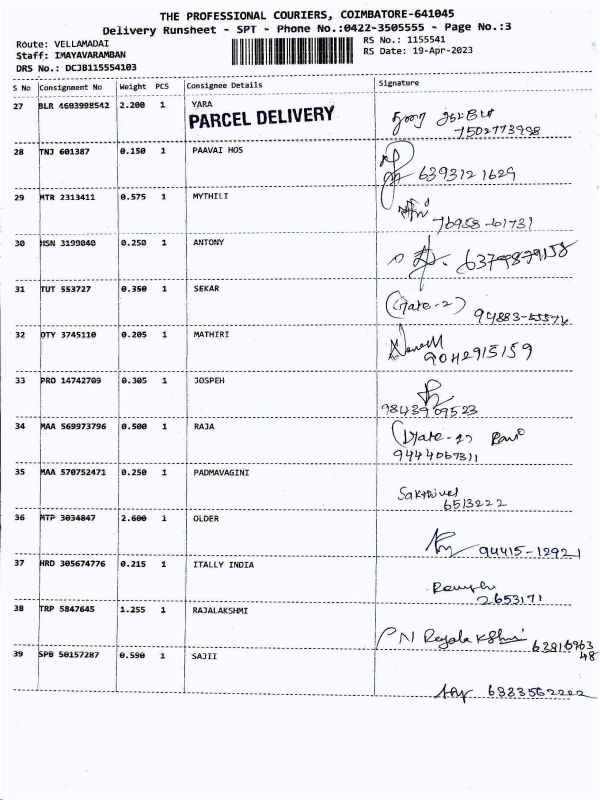 THE PROFESSIONAL COURIERS, COIMBATORE-641045
Delivery Runsheet - SPT - Phone No.:0422-3505555 - Page No.:3
Route: VELLAMADAI
RS No.: 1155541
Staff: IMAYAVARAMBAN
RS Date: 19-Apr-2023
DRS No.: DCJB115554103
S No Consignment No Weight PCS Consignee Details Signature
27 BLR 4603998542 2.200 1 YARA
PARCEL DELIVERY
7502773998
28 TNJ 601387 0.150 1 PAAVAI HOS
6393121629
29 MTR 2313411 0.575 1 MYTHILI
76958-61731
30 HSN 3199040 0.250 1 ANTONY
6379879158
31 TUT 553727 0.350 1 SEKAR
(Gate-2)
94883-55576
32 OTY 3745110 0.205 1 MATHIRI
9042915159
33 PRO 14742709 0.305 1 JOSPEH
98439 09523
34 MAA 569973796 0.500 1 RAJA
9444067311
35 MAA 570752471 0.250 1 PADMAVAGINI
Sakthivel
6513222
36 MTP 3034847 2.600 1 OLDER
94415-12921
37 HRD 305674776 0.215 1 ITALLY INDIA
2653171
38 TRP 5847645 1.255 1 RAJALAKSHMI
PN Rajalakshmi 63816963
48
39 SPB 50157287 0.590 1 SAJII
6383562222